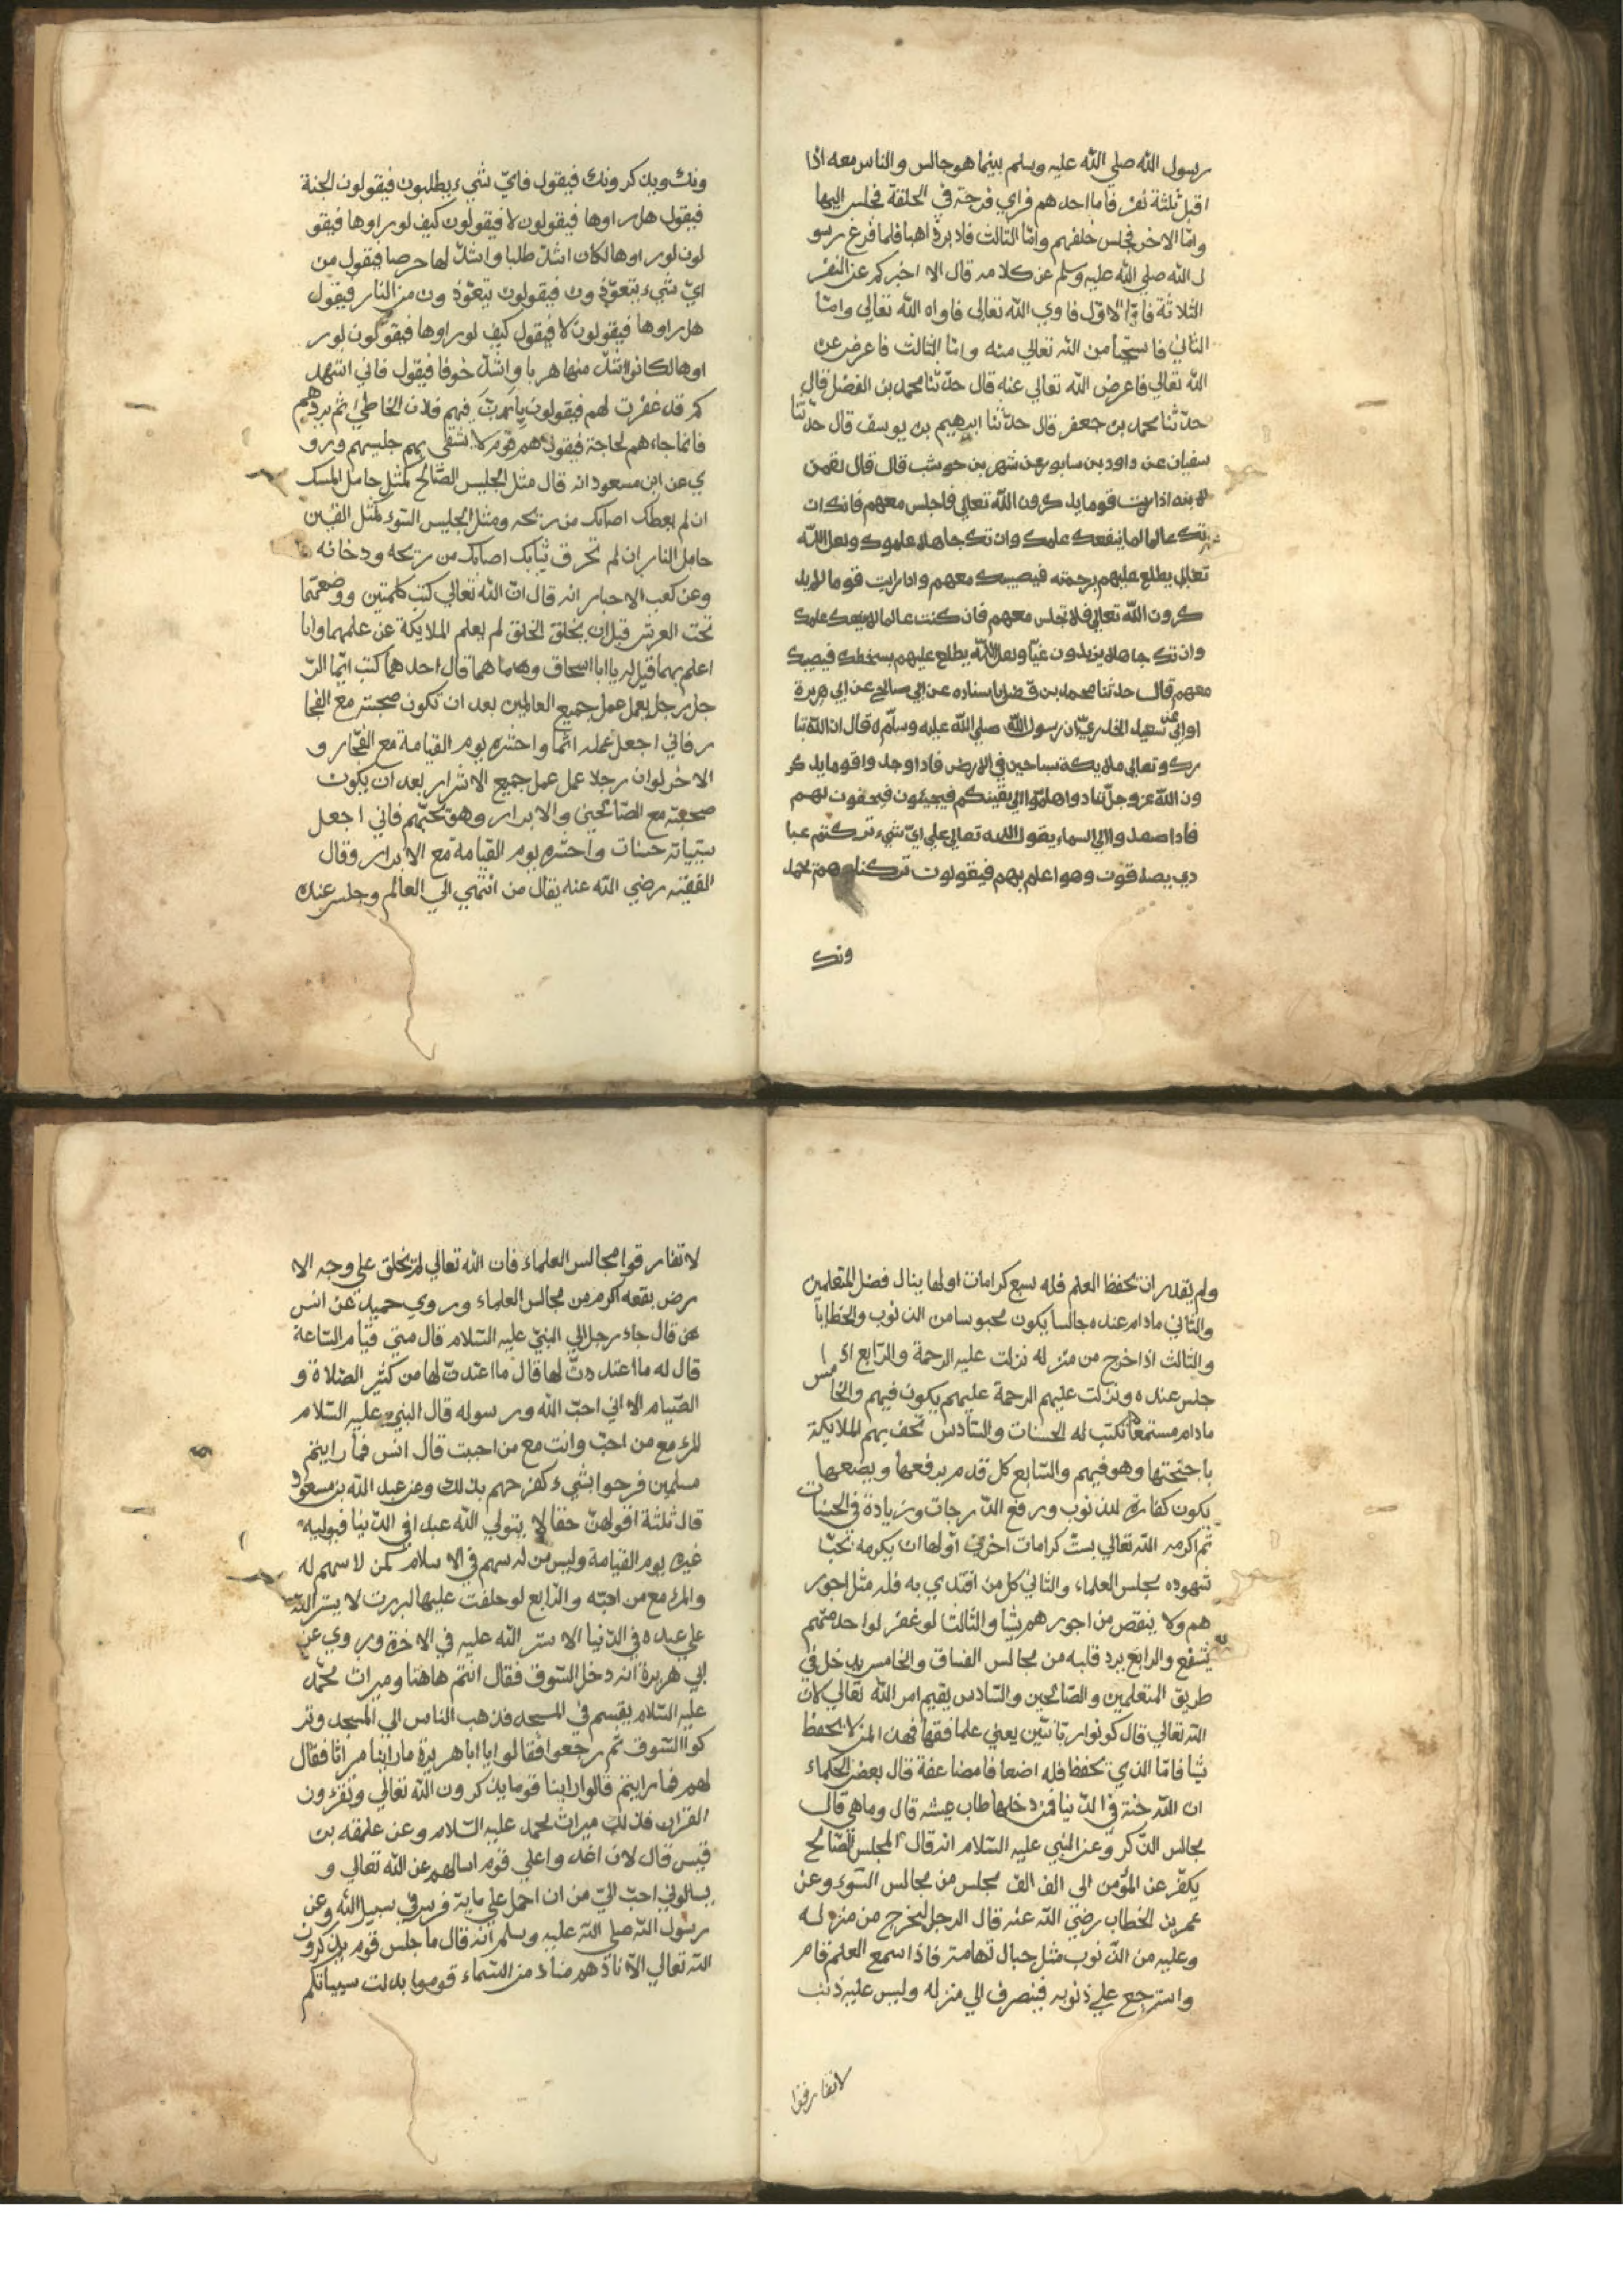 رسول الله صلي الله عليه وسلم بينما هو جالس والناس معه اذا
اقبل ثلثة نفر فاما احدهم فراي فرجة في الحلقة فجلس اليها
وامّا الاخر فجلس خلفهم وامّا الثالث فادبر ذاهبا فلما فرغ رسو
ل الله صلي الله عليه وسلم عن كلامه قال الا اخبركم عن النفر
الثلاثة فامّا الاوّل فاوي الله تعالي فاواه الله تعالي وامّا
الثاني فاستحيا من الله تعالي منه وامّا الثالث فاعرض عن
الله تعالي فاعرض الله تعالي عنه قال حدّثنا محمد بن الفضل قال
حدّثنا محمد بن جعفر قال حدّثنا ابرهيم بن يوسف قال حدّثنا
سفيان عن داود بن سابور عن شهر بن حوشب قال قال لقمن
لابنه اذا رايت قوما يذكرون الله تعالي فاجلس معهم فانك ان
تك عالما لما ينفعك علمك وان تك جاهلا علموك ولعل الله
تعالي يطلع عليهم برحمته فيصيبك معهم واذا رايت قوما لم يذ
كرون الله تعالي فلا تجلس معهم فان كنت عالما لا ينفعك علمك
وان تك جاهلا يزيدون غيّا ولعل الله يطلع عليهم بسخطه فيصيبك
معهم قال حدثنا محمد بن فضل باسناده عن ابي صالح عن ابي هريرة
او ابي سعيد الخدريّ ان رسول الله صلي الله عليه وسلّم ه قال ان الله تبا
رك وتعالي ملايكة سياحين في الارض فاذا وجدوا قوما يذكر
ون الله عز وجل تنادوا هلمّوا الي بقيتكم فيجيئون فيحفون لهم
فاذا صعدوا الي السماء يقول الله تعالي علي ايّ شيء تركتم عبا
دي يصدقون وهو اعلم بهم فيقولون تركناهم يحمد
ونك
ونك ويذكرونك فيقول فايّ شيء يطلبون فيقولون الجنة
فيقول هل راوها فيقولون لا فيقولون كيف لو راوها فيقو
لون لو راوها لكان اشدّ طلبا واشدّ لها حرصا فيقول من
ايّ شيء يتعوّذون فيقولون يتعوّذون من النار فيقول
هل راوها فيقولون لا فيقول كيف لو راوها فيقولون لو ر
اوها لكانوا اشدّ منها هربا واشدّ خوفا فيقول فاني اشهد
كم قد غفرت لهم فيقولون يا ربّ فيهم فلان الخاطئ لم يردهم
فانما جاءهم لحاجة فيقول هم قوم لا يشقي بهم جليسهم ورو
ي عن ابن مسعود انه قال مثل الجليس الصّالح كمثل حامل المسك
ان لم يعطك اصابك من ريحه ومثل الجليس السّوء كمثل القين
حامل النار ان لم تحرق ثيابك اصابك من ريحه ودخانه
وعن كعب الاحبار انه قال انّ الله تعالي كتب كلمتين ووضعهما
تحت العرش قبل ان يخلق الخلق لم يعلم الملايكة عن علمهما وانا
اعلم بهما قيل له يا ابا اسحاق وما هما قال احدهما كتب ايّما الرّ
جل رجل يعمل عمل جميع العالمين بعد ان تكون صحبته مع الفجا
ر فاني اجعل عمله اثما واحشره يوم القيامة مع الفجّار و
الاخر لو ان رجلا عمل عمل جميع الاشرار بعد ان يكون
صحبته مع الصّالحين والابرار وهو يحبّهم فاني اجعل
سيّياته حسنات واحشره يوم القيامة مع الابرار وقال
الفقيه رضي الله عنه يقال من انتهي الي العالم وجلس عنده
ولم يقدر ان يحفظ العلم فله سبع كرامات اولها ينال فضل المتعلمين
والثاني ما دام عنده جالسا يكون محبوسا من الذنوب والخطايا
والثالث اذا خرج من منزله نزلت عليه الرحمة والرّابع اذا
جلس عنده ونزلت عليهم الرحمة عليهم يكون فيهم والخامس
ما دام مستمعا تكتب له الحسنات والسّادس تحف بهم الملايكة
باجنحتها وهو فيهم والسّابع كل قدم يرفعها ويضعها
يكون كفارة للذنوب ورفع الدّرجات وزيادة في الحسنات
ثم اكرمه الله تعالي بستّ كرامات اخري اوّلها ان يكرمه بحبّ
شهوده مجلس العلماء والثاني كل من اقتدي به فله مثل اجور
هم ولا ينقص من اجورهم شيا والثالث لو غفر لواحد منهم
يشفع والرابع يرد قلبه من مجالس الفساق والخامس يدخل في
طريق المتعلمين والصّالحين والسّادس يقيم امر الله تعالي لان
الله تعالي قال كونوا ربّانيّين يعني علما فقها فهذا لمن لا يحفظ
شيا فامّا الذي يحفظ فله اضعافا مضاعفة قال بعض الحكماء
ان الله جنة في الدّنيا فمن دخلها طاب عيشه قال وما هي قال
مجالس الذّكر وعن النبي عليه السّلام انه قال المجلس الصّالح
يكفّر عن المؤمن الي الف الف مجلس من مجالس السّوء وعن
عمر بن الخطاب رضي الله عنه قال الرجل ليخرج من منزله
وعليه من الذّنوب مثل جبال تهامة فاذا سمع العلم قام
واسترجع علي ذنوبه فينصرف الي منزله وليس عليه ذنب
لا تفارقوا
لا تفارقوا مجالس العلماء فان الله تعالي لم يخلق علي وجه الا
رض بقعة اكرم من مجالس العلماء وروي حميد عن انس
قال جاء رجل الي النبيّ عليه السّلام قال متي قيام السّاعة
قال له ما اعتددتّ لها قال ما اعتددتّ لها من كثير الصّلاة و
الصّيام الا اني احبّ الله ورسوله قال النبي عليه السّلام
المرء مع من احبّ وانت مع من احببت قال انس فما رايتم
مسلمين فرحوا بشيء كفرحهم بذلك وعن عبد الله بن مسعود
قال ثلثة اقولهنّ حقا لا يتولي الله عبدا في الدّنيا فيوليه
غيره يوم القيامة وليس من له سهم في الاسلام كمن لا سهم له
والمرء مع من احبّه والرّابع لو حلفت عليها لبررت لا يستر الله
علي عبده في الدّنيا الا ستر الله عليه في الاخرة وروي عن
ابي هريرة انه دخل السّوق فقال انتم هاهنا وميراث محمّد
عليه السّلام يقسم في المسجد فذهب الناس الي المسجد وتر
كوا السّوق ثم رجعوا فقالوا يا ابا هريرة ما راينا ميراثا فقال
لهم فما رايتم قالوا راينا قوما يذكرون الله تعالي ويقرؤن
القران فذلك ميراث محمد عليه السّلام وعن علقمة بن
قيس قال لان اغدوا علي قوم اسالهم عن الله تعالي و
يسالوني احبّ اليّ من ان احمل علي ماية فرس في سبيل الله وعن
رسول الله صلي الله عليه وسلم انه قال ما جلس قوم يذكرون
الله تعالي الا ناداهم مناد من السّماء قوموا بدلت سيياتكم